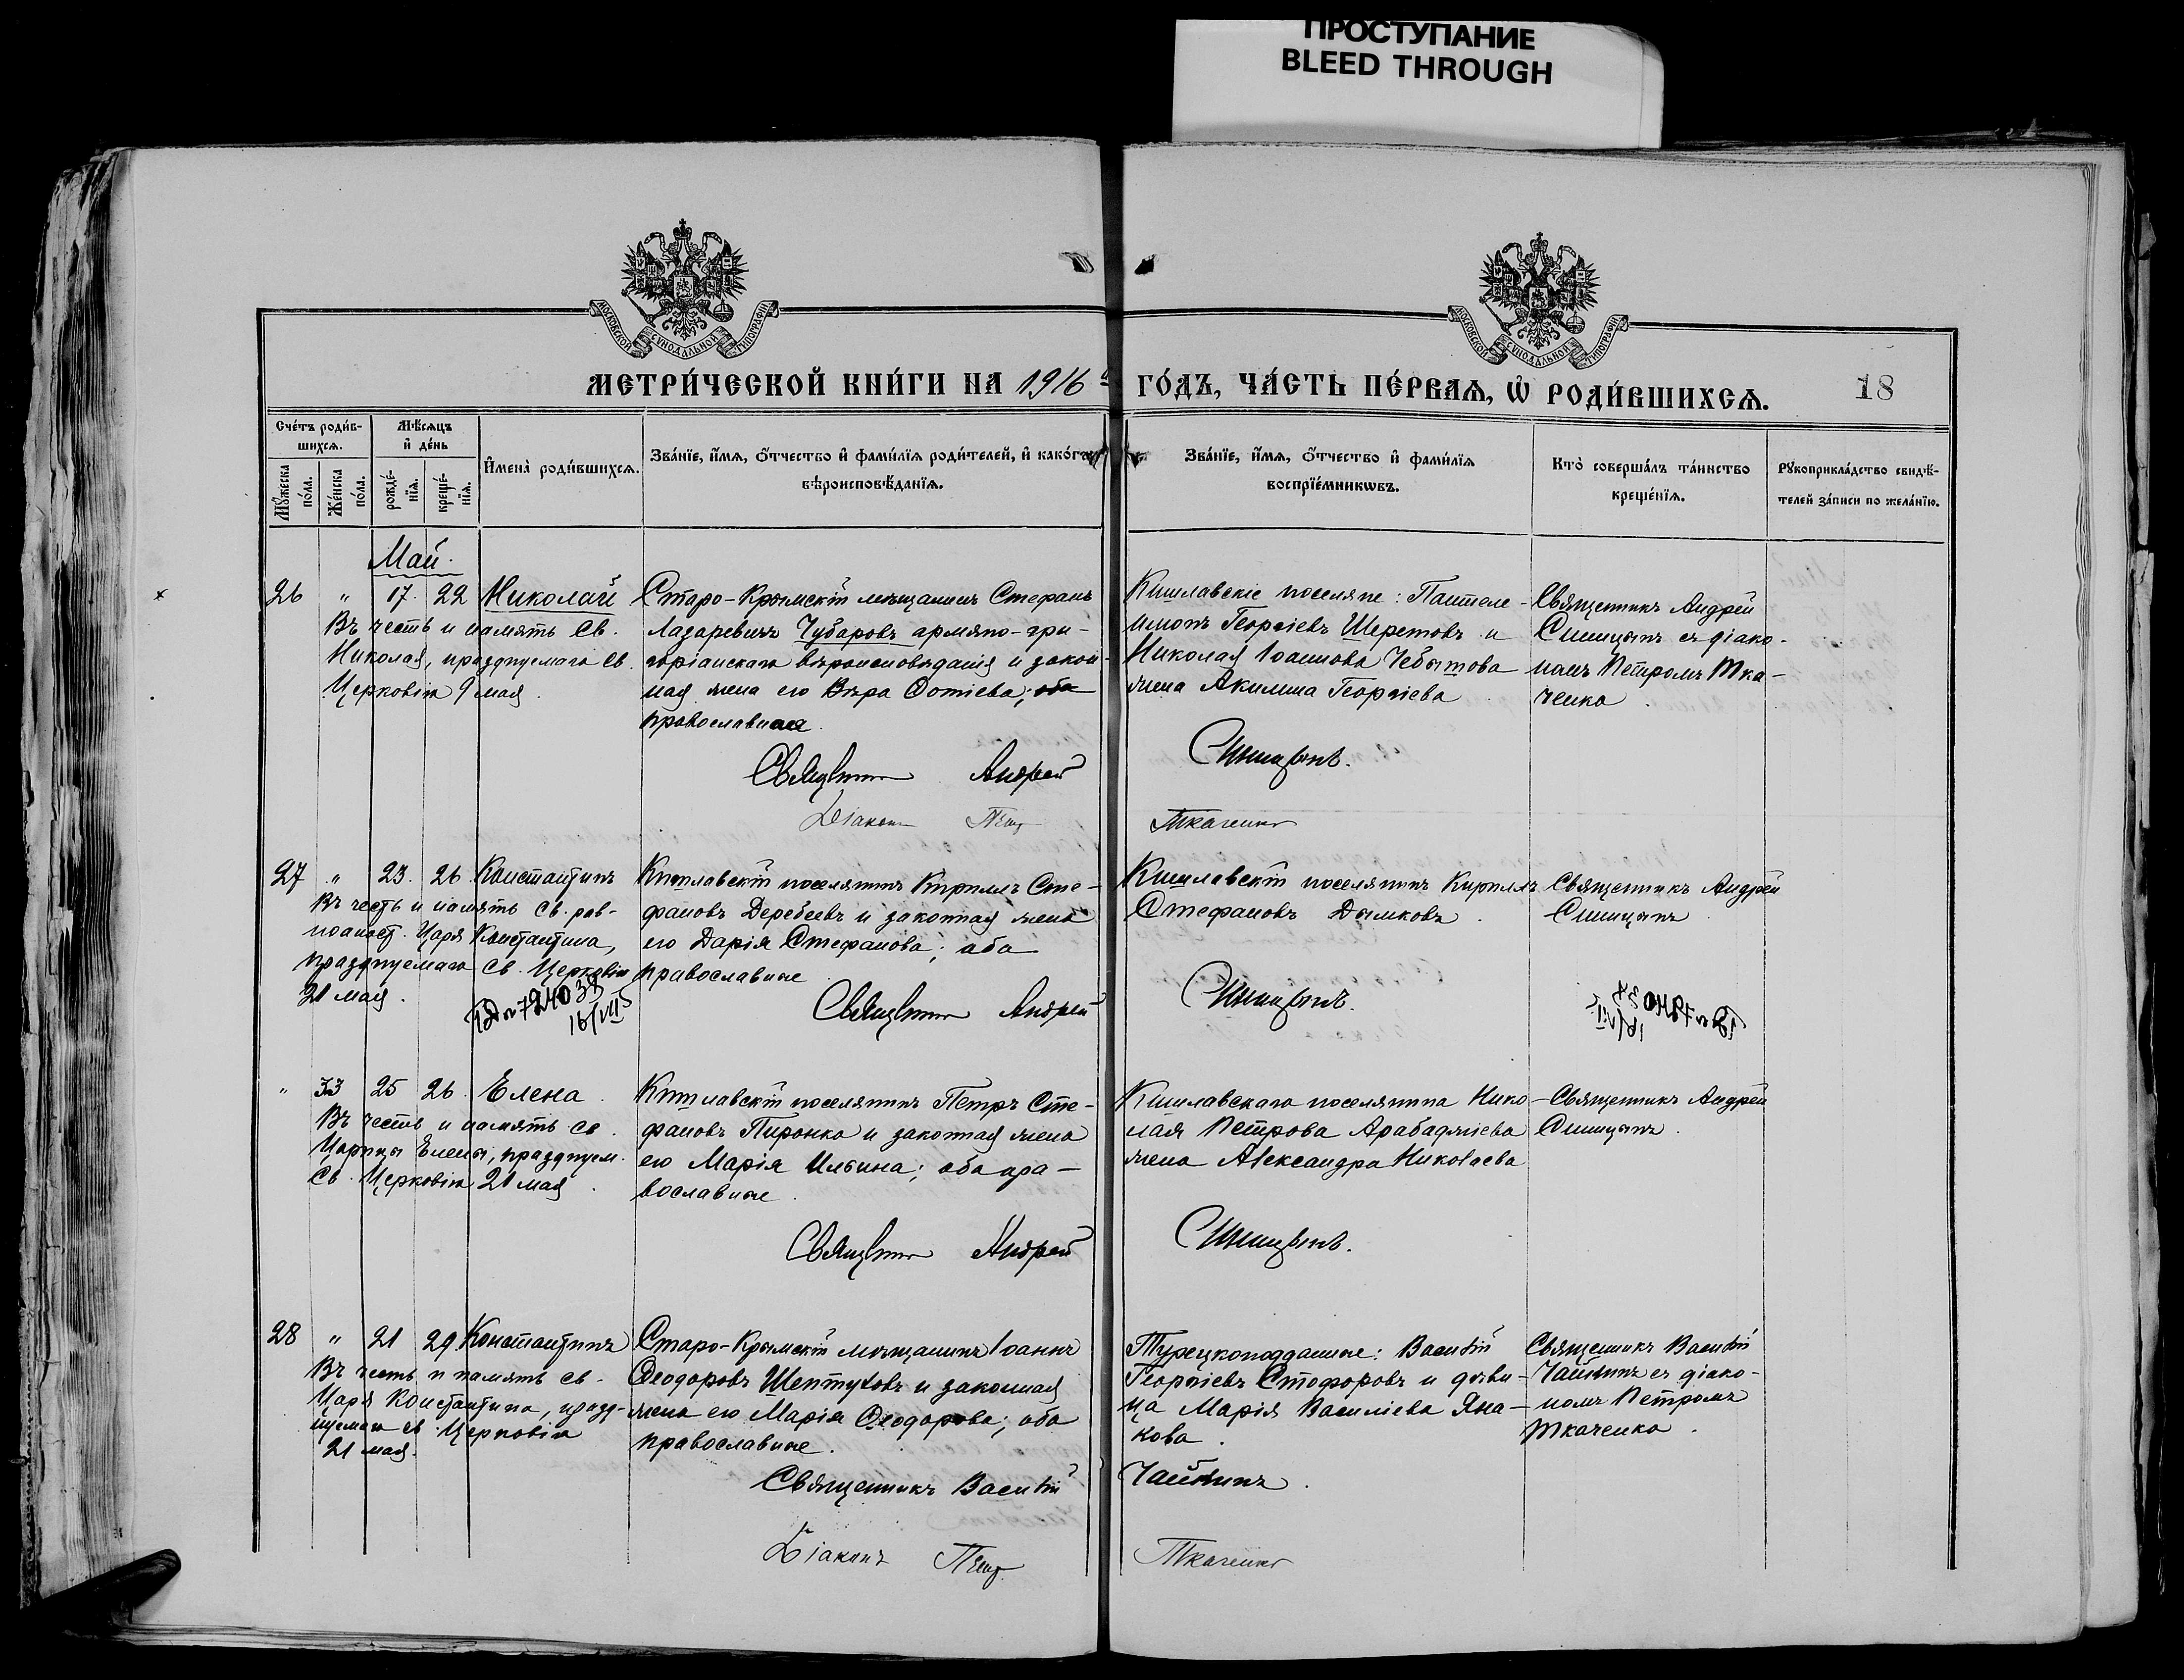 ПРОСТУПАНИЕ
BLEED THROUGH
МОСКОВСКОЙ СѴНОДАЛЬНОЙ ТИПОГРАФІИ
МОСКОВСКОЙ СѴНОДАЛЬНОЙ ТИПОГРАФІИ
МЕТРИ́ЧЕСКОЙ КНИ́ГИ НА 1916 ГО́ДЪ, ЧА́СТЬ ПЕ́РВАѦ, Ѡ҆ РОДИ́ВШИХСѦ.
18
Сче́тъ роди́в-
шихсѧ.
Мꙋ́жеска по́ла.
Же́нска по́ла.
Мѣ́сѧцъ
и҆ де́нь
рожде́-нїѧ.
креще́-нїѧ.
И҆мена̀ роди́вшихсѧ.
Зва́нїе, и҆́мѧ, ѻ҆́тчество и҆ фами́лїѧ роди́телей, и҆ како́гѡ
вѣроисповѣ́данїѧ.
Зва́нїе, и҆́мѧ, ѻ҆́тчество и҆ фами́лїѧ
воспрїе́мникѡвъ.
Кто̀ соверша́лъ та́инство
креще́нїѧ.
Рꙋкоприкла́дство свидѣ́-
телей за́писи по жела́нїю.
Май.
26 " 17. 22 Николай
Въ честь и память Св.
Николая, празднуемаго Св.
Церковію 9 мая.
Старо-Крымскій мѣщанинъ Стефанъ
Лазаревичъ Чубаровъ армяно-гри-
горіанскаго вѣроисповѣданія и закон-
ная жена его Вѣра Фотіева; оба
православная.
Кишлавскіе поселяне: Пантеле-
имонъ Георгіевъ Шеретовъ и
Николая Іоаннова Чебытова
жена Акилина Георгіева
Священникъ Андрей
Синицынъ съ діако-
номъ Петромъ Тка-
ченко.
Священникъ Андрей Синицынъ.
Діаконъ Петр Ткаченко
27 " 23. 26 Константинъ
Въ честь и память Св. рав-
ноапост. Царя Константина,
празднуемаго Св. Церковію
21 мая.
Кишлавскій поселянинъ Кириллъ Сте-
фановъ Деребеевъ и законная жена
его Дарія Стефанова; оба
православные
Кишлавскій поселянинъ Кириллъ
Стефановъ Дымковъ.
Священникъ Андрей
Синицынъ
Священникъ Андрей Синицынъ.
16/VII
" 33 25 26. Елена.
Въ честь и память св.
Царицы Елены, празднуем.
Св. Церковію 21 мая.
Кишлавскій поселянинъ Петръ Сте-
фановъ Пиронко и законная жена
его Марія Ильина; оба пра-
вославные.
Кишлавскаго поселянина Нико-
лая Петрова Арабаджіева
жена Александра Николаева
Священникъ Андрей
Синицынъ.
Священникъ Андрей Синицынъ.
28 " 21 29 Константинъ
Въ честь и память св.
Царя Константина, празд-
нуемаго св. Церковію
21 мая.
Старо-Крымскій мѣщанинъ Іоаннъ
Ѳеодоровъ Шептуховъ и законная
жена его Марія Ѳеодорова; оба
православные.
Турецкоподданные: Василій
Георгіевъ Стофоровъ и дѣви-
ца Марія Василіева Яна-
кова.
Священникъ Василій
Чайкинъ съ діако-
номъ Петромъ
Ткаченко.
Священникъ Василій Чайкинъ.
Діаконъ Петр Ткаченко